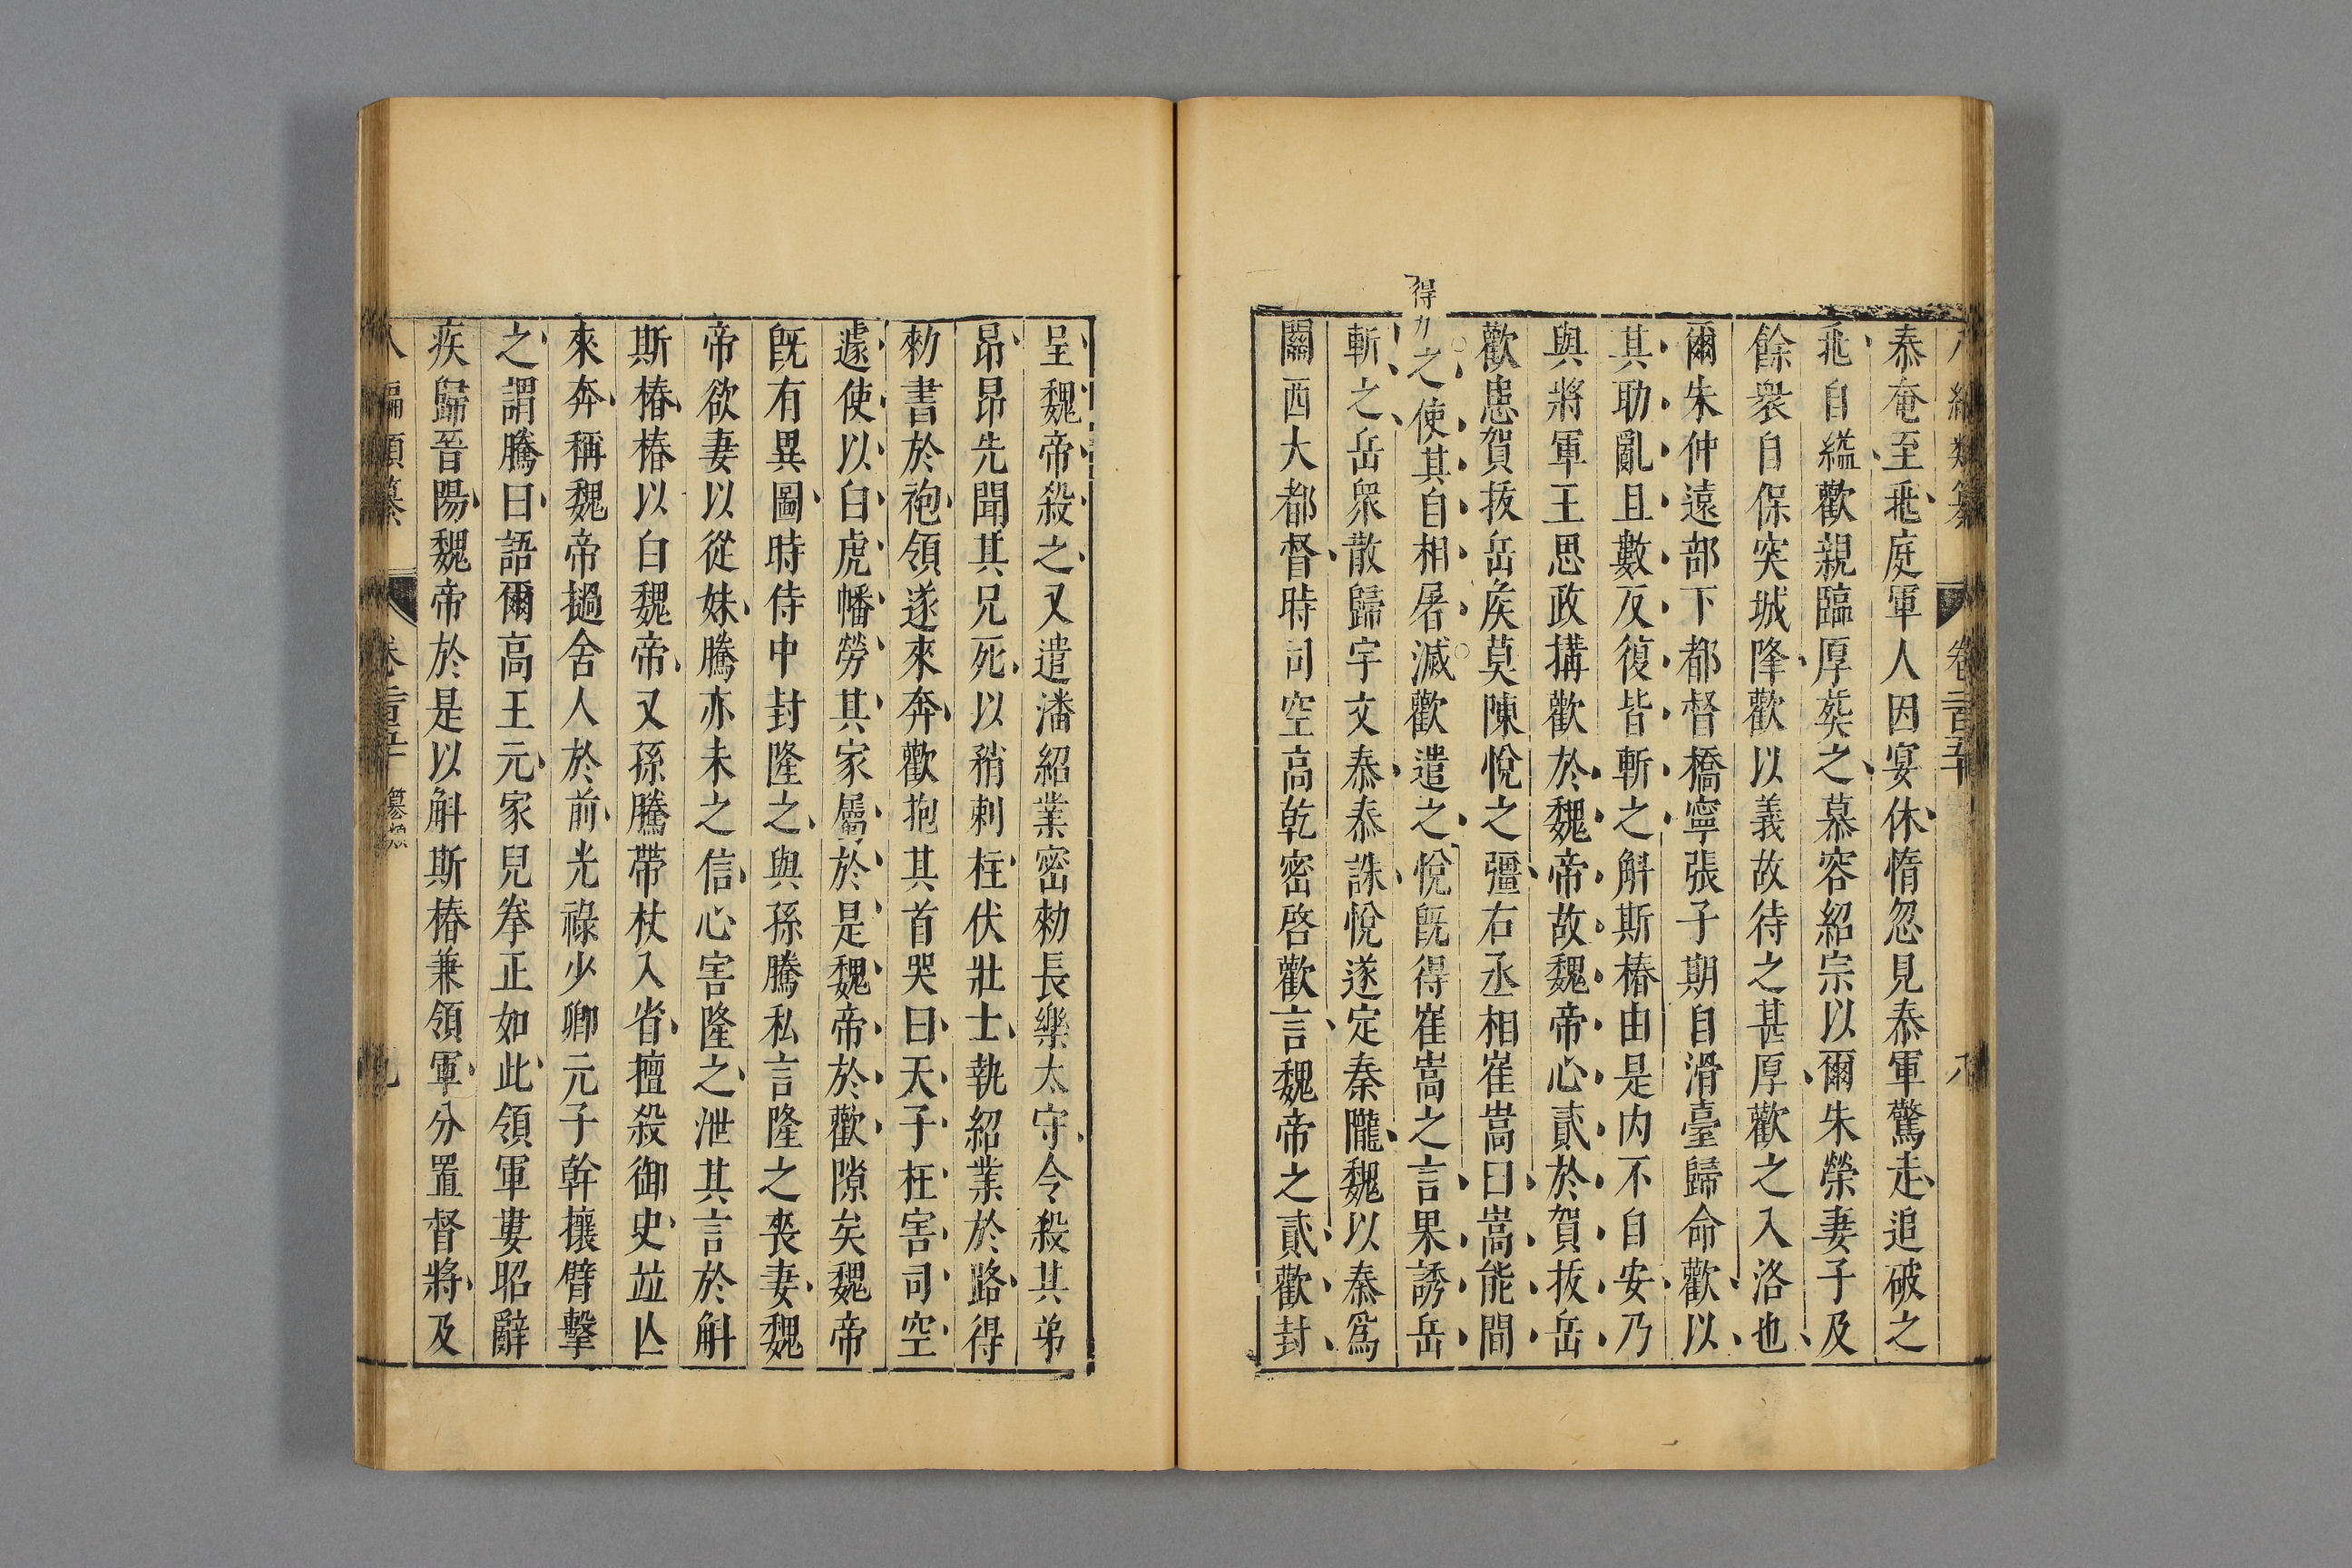 八編類纂 卷二百五十 八
泰奄至兆庭軍人因宴休惰忽見泰軍驚走追破之
兆自縊歡親臨厚葬之慕容紹宗以爾朱榮妻子及
餘衆自保突城降歡以義故待之甚厚歡之入洛也
爾朱仲遠部下都督橋寧張子期自滑臺歸命歡以
其助亂且數反復皆斬之斛斯椿由是內不自安乃
與將軍王思政搆歡於魏帝故魏帝心貳於賀拔岳
歡患賀拔岳矦莫陳悅之彊右丞相崔嵩曰嵩能間
得力
之使其自相屠滅歡遣之悅旣得崔嵩之言果誘岳
斬之岳眾散歸宇文泰泰誅悅遂定秦隴魏以泰爲
關西大都督時司空高乾密啓歡言魏帝之貳歡封
呈魏帝殺之又遣潘紹業密勑長樂太守令殺其弟
昂昂先聞其兄死以矟刺柱伏壯士執紹業於路得
勑書於袍領遂來奔歡抱其首哭曰天子枉害司空
遽使以白虎幡勞其家屬於是魏帝於歡隙矣魏帝
旣有異圖時侍中封隆之與孫騰私言隆之喪妻魏
帝欲妻以從妹騰亦未之信心害隆之泄其言於斛
斯椿椿以白魏帝又孫騰帶杖入省擅殺御史並亾
來奔稱魏帝撾舍人於前光祿少卿元子幹攘臂擊
之謂騰曰語爾高王元家兒拳正如此領軍婁昭辭
疾歸晉陽魏帝於是以斛斯椿兼領軍分置督將及
八編類纂 卷二百五十 九